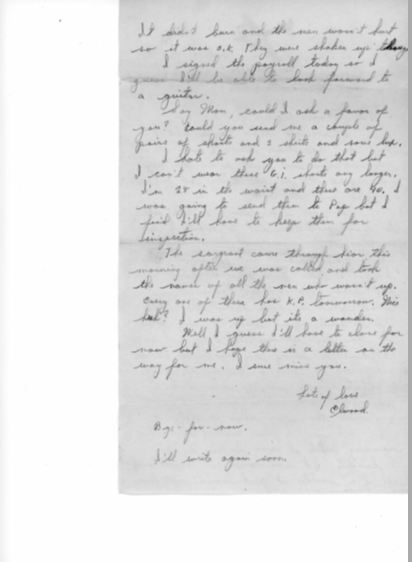 It didn't burn and the men wasn't hurt
so it was O.K. They were shaken up though
I signed the payroll today so I
guess I'll be able to look forward to
a guitar.
Say Mom, could I ask a favor of
you? Could you send me a couple of
pairs of shorts and 2 shirts and some
I hate to ask you to do that but
I can't wear these G.I. shorts any longer.
I'm 28 in the waist and these are 40. I
was going to send them to Pop but I
find I'll have to keep them for
inspection.
The sergeant came through here this
morning after we was called and took
the names of all the men who wasn't up.
Every one of them has K.P. tomorrow. Nice
huh? I was up but its a wonder.
Well I guess I'll have to close for
now but I hope there is a letter on the
way for me. I sure miss you.
Lots of love
Elwood.
Bye - for - now.
I'll write again soon.